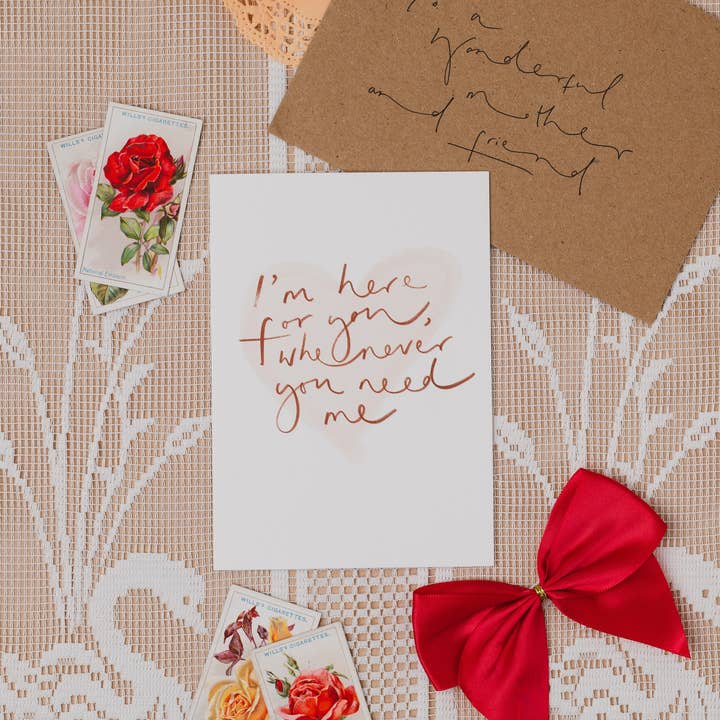 To a
Wonderful
mother
and friend
I'm here
for you,
whenever
you need
me
WILLS'S CIGARETTES.
WILLS'S CIGARETTES.
National Emblem
WILLS'S CIGARETTES.
WILLS'S CIGARETTES.